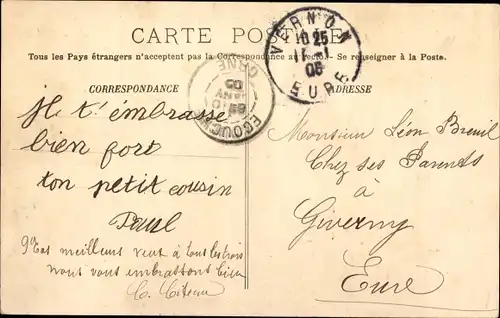 CARTE POSTALE
Tous les Pays étrangers n'acceptent pas la Correspondance au recto. - Se renseigner à la Poste.
CORRESPONDANCE
ADRESSE
VERNON
10 25
05
EURE
ECOUCHÉ
ORNE
05
Je t'embrasse
bien fort
ton petit cousin
Paul
meilleurs vœux à tous les trois
nous vous embrassons bien
Monsieur Léon Breuil
Chez ses Parents
à
Giverny
Eure